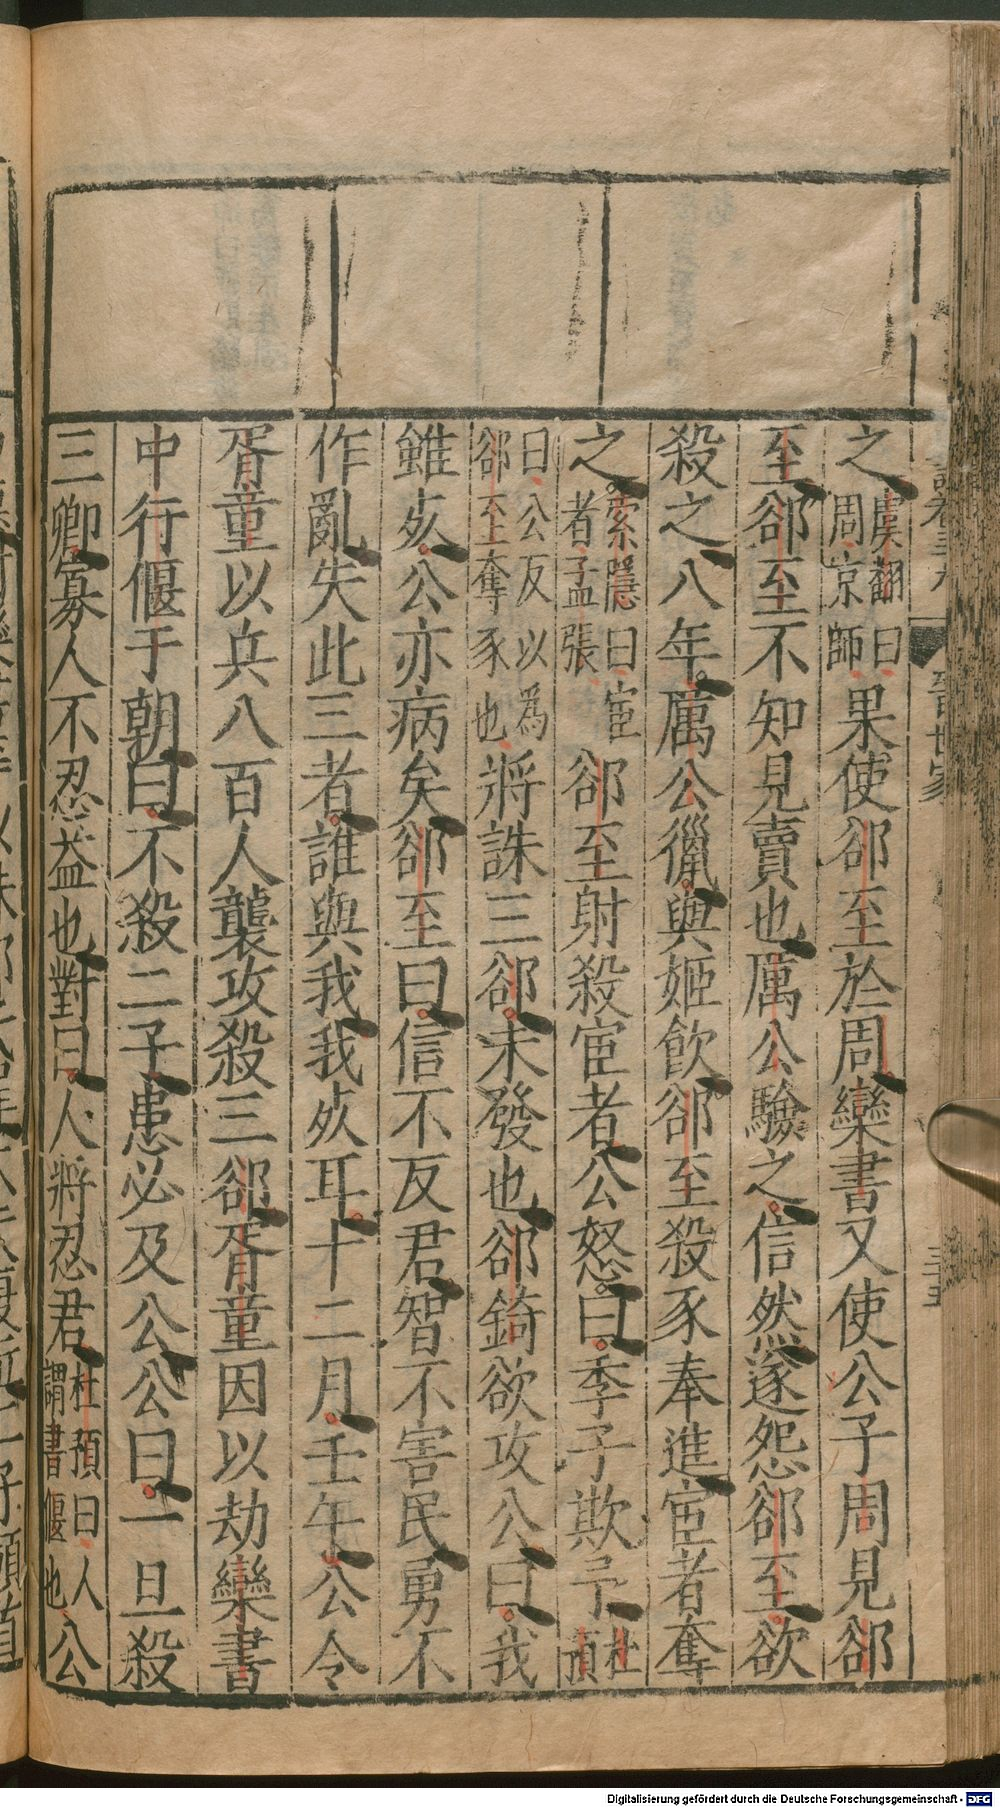 晉世家
三十五
之虞翻曰周京師果使郤至於周欒書又使公子周見郤
至郤至不知見賣也厲公驗之信然遂怨郤至欲
殺之八年厲公獵與姬飲郤至殺豕奉進宦者奪
之索隱曰宦者孟張郤至射殺宦者公怒曰季子欺予杜預
曰公反以為郤至奪豕也將誅三郤未發也郤錡欲攻公曰我
雖死公亦病矣郤至曰信不反君智不害民勇不
作亂失此三者誰與我我死耳十二月壬午公令
胥童以兵八百人襲攻殺三郤胥童因以劫欒書
中行偃于朝曰不殺二子患必及公公曰一旦殺
三卿寡人不忍益也對曰人將忍君杜預曰人謂書偃也公
Digitalisierung gefördert durch die Deutsche Forschungsgemeinschaft - DFG